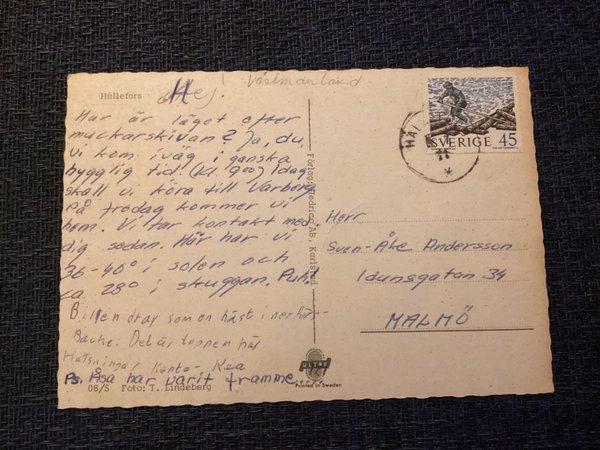 Hällefors
Hej! Västmanland
Hur är läget efter
muckarskivan? Ja, du,
vi kom iväg i ganska
hygglig tid. (kl. 900) Idag
skall vi köra till Varberg
På fredag kommer vi
hem. Vi tar kontakt med
dig sedan. Här har vi
36-40° i solen och
ca 28° i skuggan. Puh.
Bilen drog som en häst i
backe. Det är toppen här
Hälsningar Kea
Ps. Åsa har varit framme
08/S Foto: T. Lindeberg
Förlag: Hedrica AB, Karlstad
ULTRA
Printed in Sweden
HÄL
SVERIGE 45
Herr
Sven-Åke Andersson
Idunsgatan 34
MALMÖ